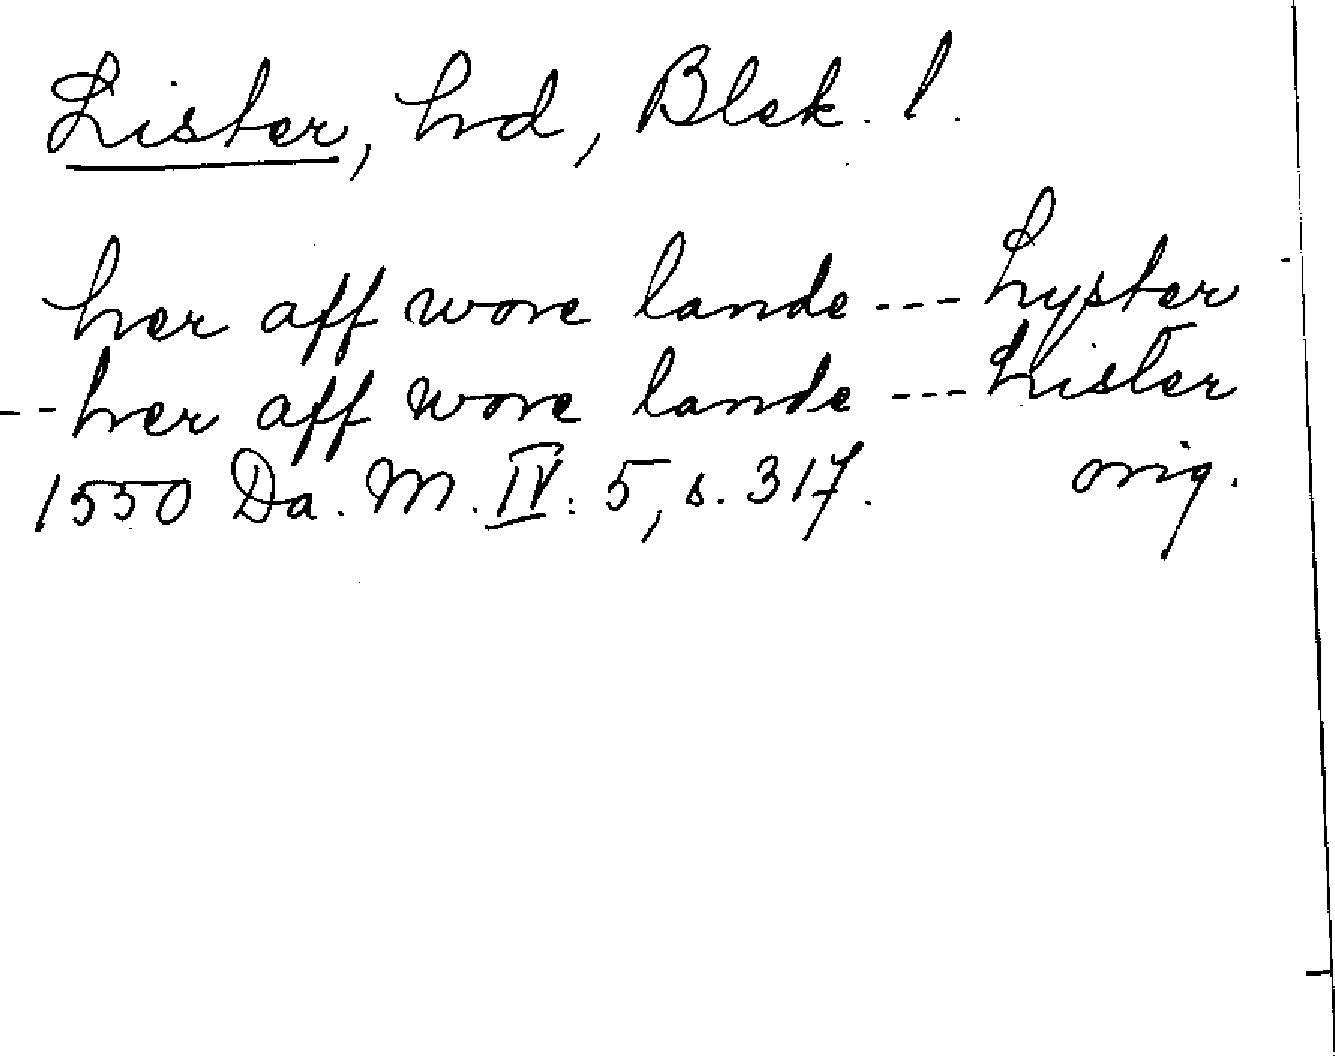 Lister, hrd, Blek. l.
her aff wore lande --- Lyster
-- her aff wore lande --- Lister
1550 Da. M. IV: 5, s. 317. orig.